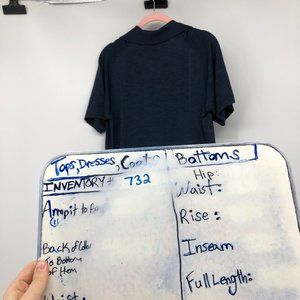 Tops, Dresses, Coats
Bottoms
INVENTORY # 732
Armpit to
(1)
Back of
To Bottom
of Hem
Waist:
Hip:
Waist:
Rise:
Inseam
Full Length: